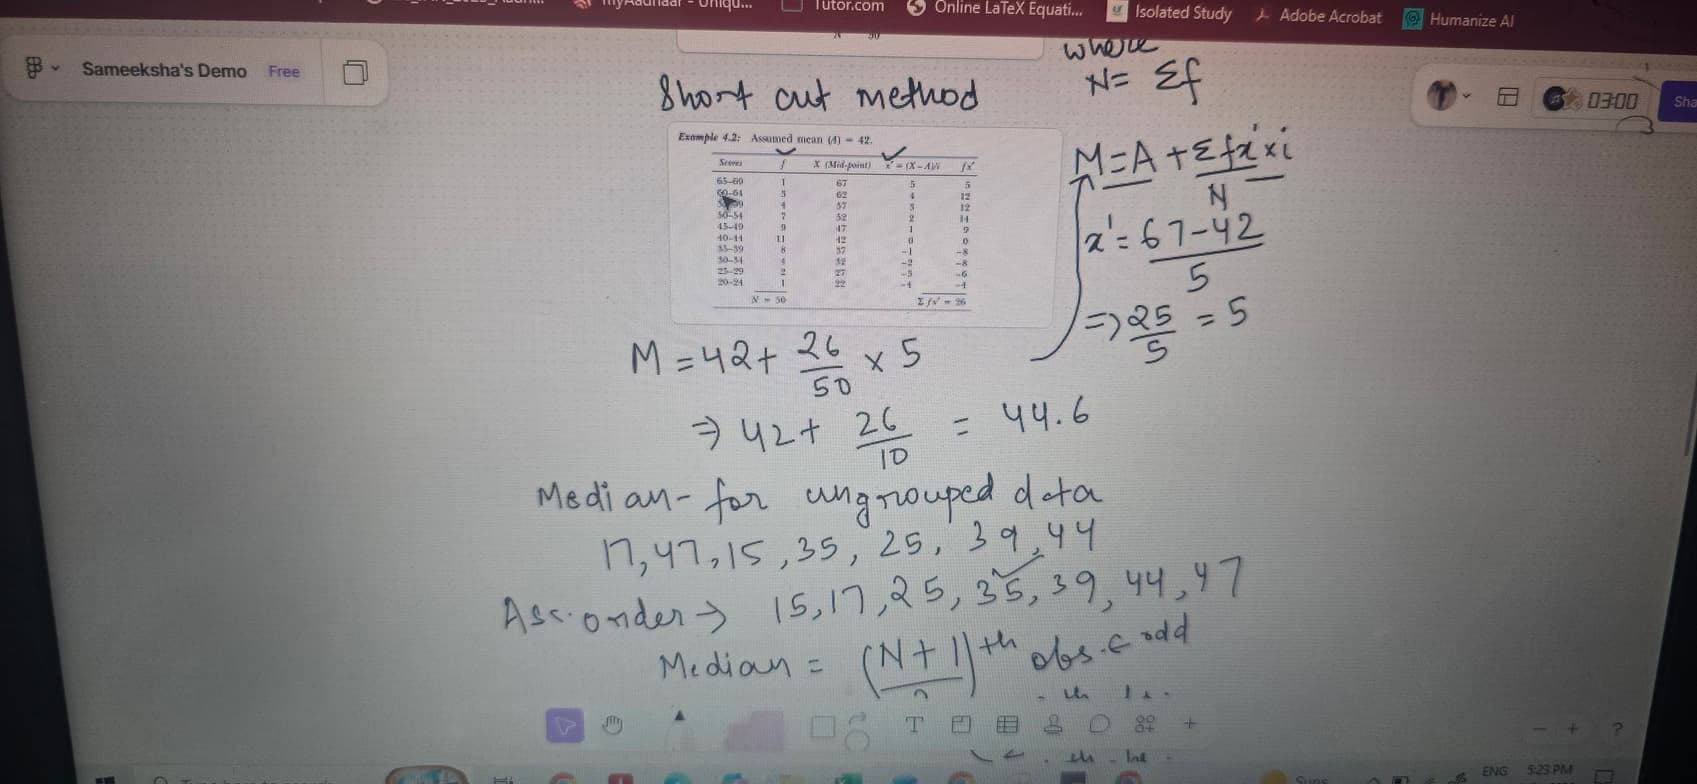 Online LaTeX Equati...
Isolated Study
Adobe Acrobat
Humanize AI
Tutor.com
where
Sameeksha's Demo Free
N = Σf
Short cut method
03:00
Sha
Example 4.2: Assumed mean (A) = 42.
Scores f X (Mid-point) x' = (X – A)/i fx'
65–69 1 67 5 5
62 4 12
4 57 3 12
50–54 7 52 2 14
45–49 9 47 1 9
40–44 11 42 0 0
35–39 8 37 –1 –8
30–34 4 32 –2 –8
25–29 2 27 –3 –6
20–24 1 22 –4 –4
N = 50 Σ fx' = 26
M = A + Σfx' × i
N
x' = 67-42
5
=> 25 = 5
5
M = 42 + 26 × 5
50
=> 42 + 26 = 44.6
10
Median - for ungrouped data
17, 47, 15, 35, 25, 39, 44
Asc. order → 15, 17, 25, 35, 39, 44, 47
Median = (N+1)th obs. ← odd
T
ENG 5:23 PM